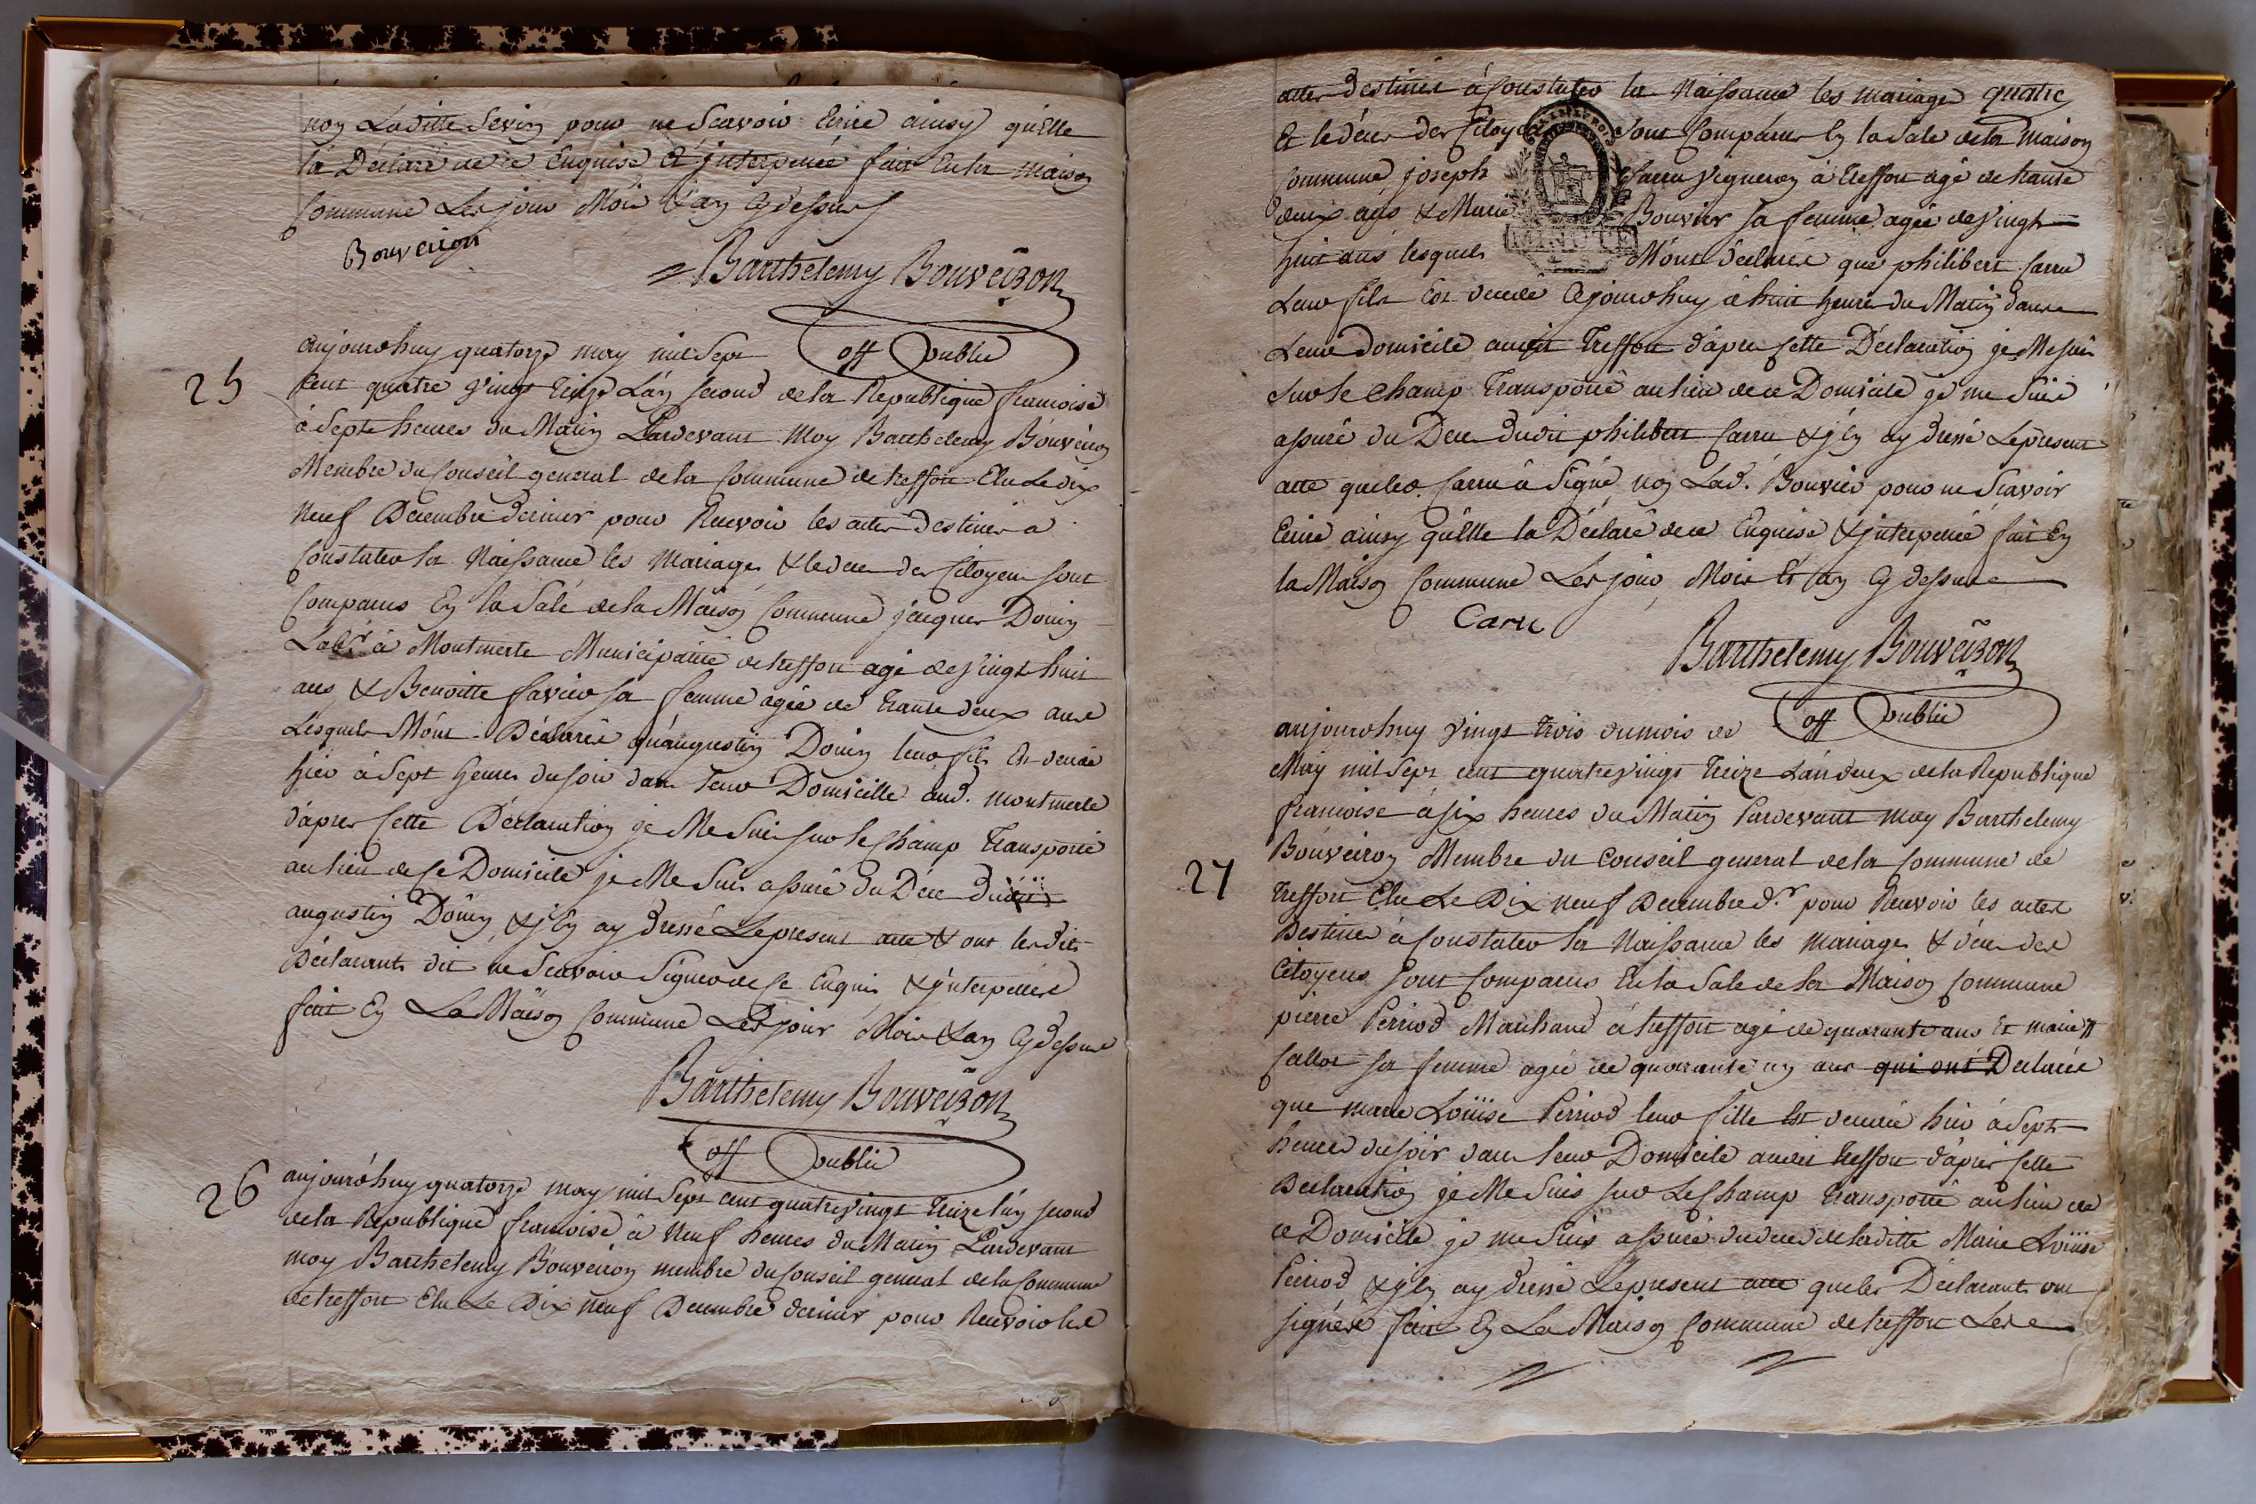 non Laditte Sevin pour ne Scavoir Ecrire ainsy qu'elle
la Déclaré de ce Enquise & interpenée fait En la maison
Commune Les jour Mois & an Cy dessus
Bouveiron
Barthelemy Bouveiron
off Public
25
aujourdhuy quatorze may mil Sept
Cent quatre vingt treize L'an second de la Republique francoise
à Sept heures du Matin Pardevant moy Barthelemy Bouveiron
Membre du Conseil general de la Commune de treffort Elu Le dix
Neuf Décembre dernier pour Recevoir les actes destinés a
Constater la Naissance les Mariages & le deces des Citoyens sont
Comparus En la Sale de la Maison Commune jacques Douin
Lab.r à Montmerle Municipalité de treffort agé de Vingt huit
ans & Benoitte favier sa femme agée de trante deux ans
Lesquels M'ont Déclarés qu'augustin Douin leur fils Est decedé
hier à Sept heures du soir dans leur Domicille aud. montmerle
d'apres Cette Déclaration je Me Suis sur le Champ transporté
au lieu de Ce Domicile je Me Suis assuré du Déce dudit
augustin Douin & j'En ay dressé Le present acte & ont lesdits
Déclarants dit ne Scavoir Signer de Ce Enquis & interpellés
fait En La Maison Commune Les jour Mois & an Cy dessus
Barthelemy Bouveiron
off Public
26
aujourd'huy quatorze may mil Sept cent quatre vingt treize l'an second
de la Republique francoise à Neuf heures du Matin Pardevant
moy Barthelemy Bouveiron membre du Conseil general de la Commune
de treffort Elu Le Dix Neuf Decembre dernier pour Recevoir les
actes destinés à Constater la Naissance les mariages quatre
Et le déces des Citoyens sont Comparus En la Sale de la Maison
Commune joseph Carru Vigneron à Treffort agé de trante
deux ans & Marie Bouvier sa femme agée de Vingt
MINUTE
huit ans lesquels M'ont déclarés que philibert Carru
Leur fils Est decedé Cejourdhuy à huit heures du Matin dans
Leur Domicile audit Treffort d'apres Cette Déclaration je Me suis
Sur le Champ transporté au lieu de ce Domicile je me Suis
assuré du Dece dudit philibert Carru & j'En ay dressé Le present
acte que led. Carru à Signé non Lad. Bouvier pour ne Scavoir
Ecrire ainsy qu'Elle la Déclaré de ce Enquise & interpenée fait En
la Maison Commune Les jour Mois Et an Cy dessus
Caru
Barthelemy Bouveiron
off Public
27
aujourdhuy Vingt trois du mois de
May mil Sept cent quatre vingt treize L'an deux de la Republique
francoise à six heures du Matin Pardevant moy Barthelemy
Bouveiron Membre du Conseil general de la Commune de
Treffort Elu Le Dix neuf Décembre d.r pour Recevoir les actes
Destinés à Constater la Naissance les Mariages & déces des
Citoyens sont Comparus En la Sale de la Maison Commune
pierre Perriod Marchand à treffort agé de quarante ans Et marie
Callot sa femme agée de quarante un ans qui ont Declarés
que marie Loüise Perriod leur fille Est decedée hier à Sept
heures du soir dans leur Domicile audit treffort d'apres Cette
Déclaration je Me Suis sur Le Champ transporté au lieu de
ce Domicille je me Suis assuré du deces de laditte Marie Loüise
Perriod & j'En ay dressé Le present acte que les Déclarants ont
signés fait En La Maison Commune de treffort Les